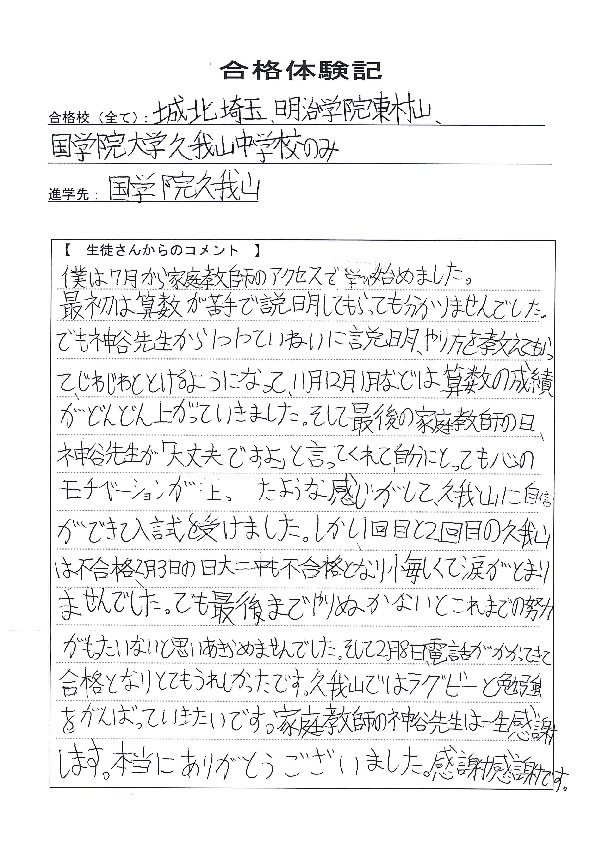 合格体験記
合格校（全て）：城北埼玉、明治学院東村山、
国学院大学久我山中学校のみ
進学先：国学院久我山
【 生徒さんからのコメント 】
僕は7月から家庭教師のアクセスで学び始めました。
最初は算数が苦手で説明してもらっても分かりませんでした。
でも神谷先生から1つ1つていねいに説明、やり方を教えてもらっ
て、じわじわととけるようになって、11月12月1月などは算数の成績
がどんどん上がっていきました。そして最後の家庭教師の日、
神谷先生が「大丈夫ですよ」と言ってくれて自分にとっても心の
モチベーションが上、たような感じがして、久我山に自信
ができて入試を受けました。しかし1回目と2回目の久我山
は不合格2月3日の日大二中も不合格となり悔しくて涙がとまり
ませんでした。でも最後までやりぬかないとこれまでの努力
がもったいないと思いあきらめませんでした。そして2月8日電話がかかってきて
合格となりとてもうれしかったです。久我山ではラグビーと勉強
をがんばっていきたいです。家庭教師の神谷先生は一生感謝
します。本当にありがとうございました。感謝感謝です。